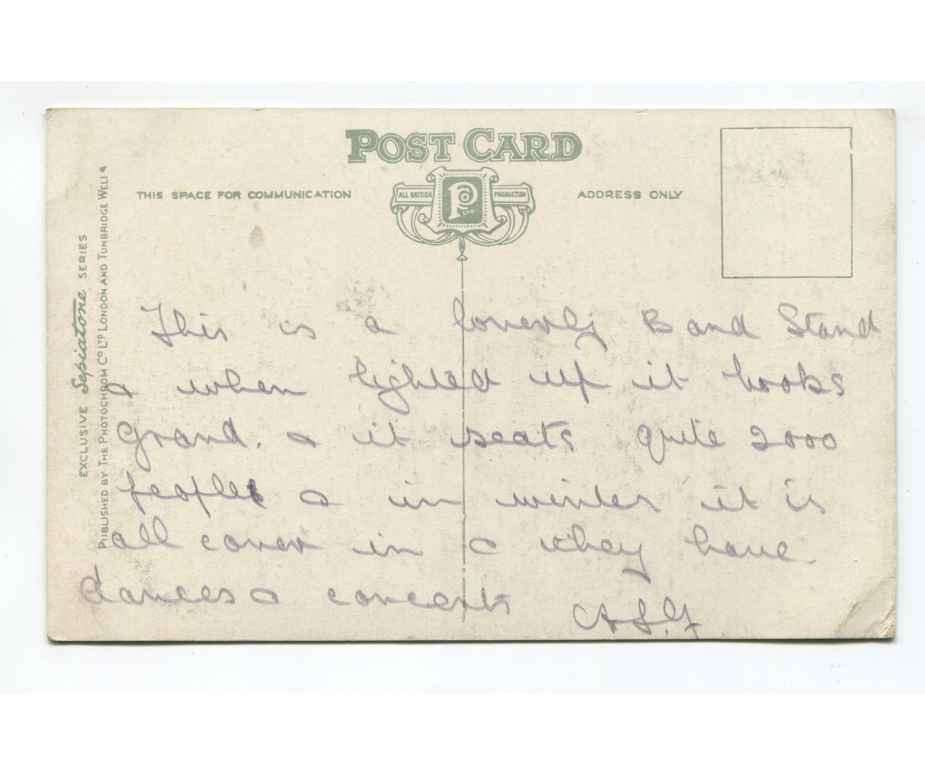 POST CARD
THIS SPACE FOR COMMUNICATION
ALL BRITISH PRODUCTION
ADDRESS ONLY
EXCLUSIVE Sepiatone SERIES
PUBLISHED BY THE PHOTOCHROM CO LTD LONDON AND TUNBRIDGE WELLS
This is a loverly Band Stand
& when lighted up it looks
grand. & it seats quite 2000
people & in winter it is
all cover in & they have
dances & concerts